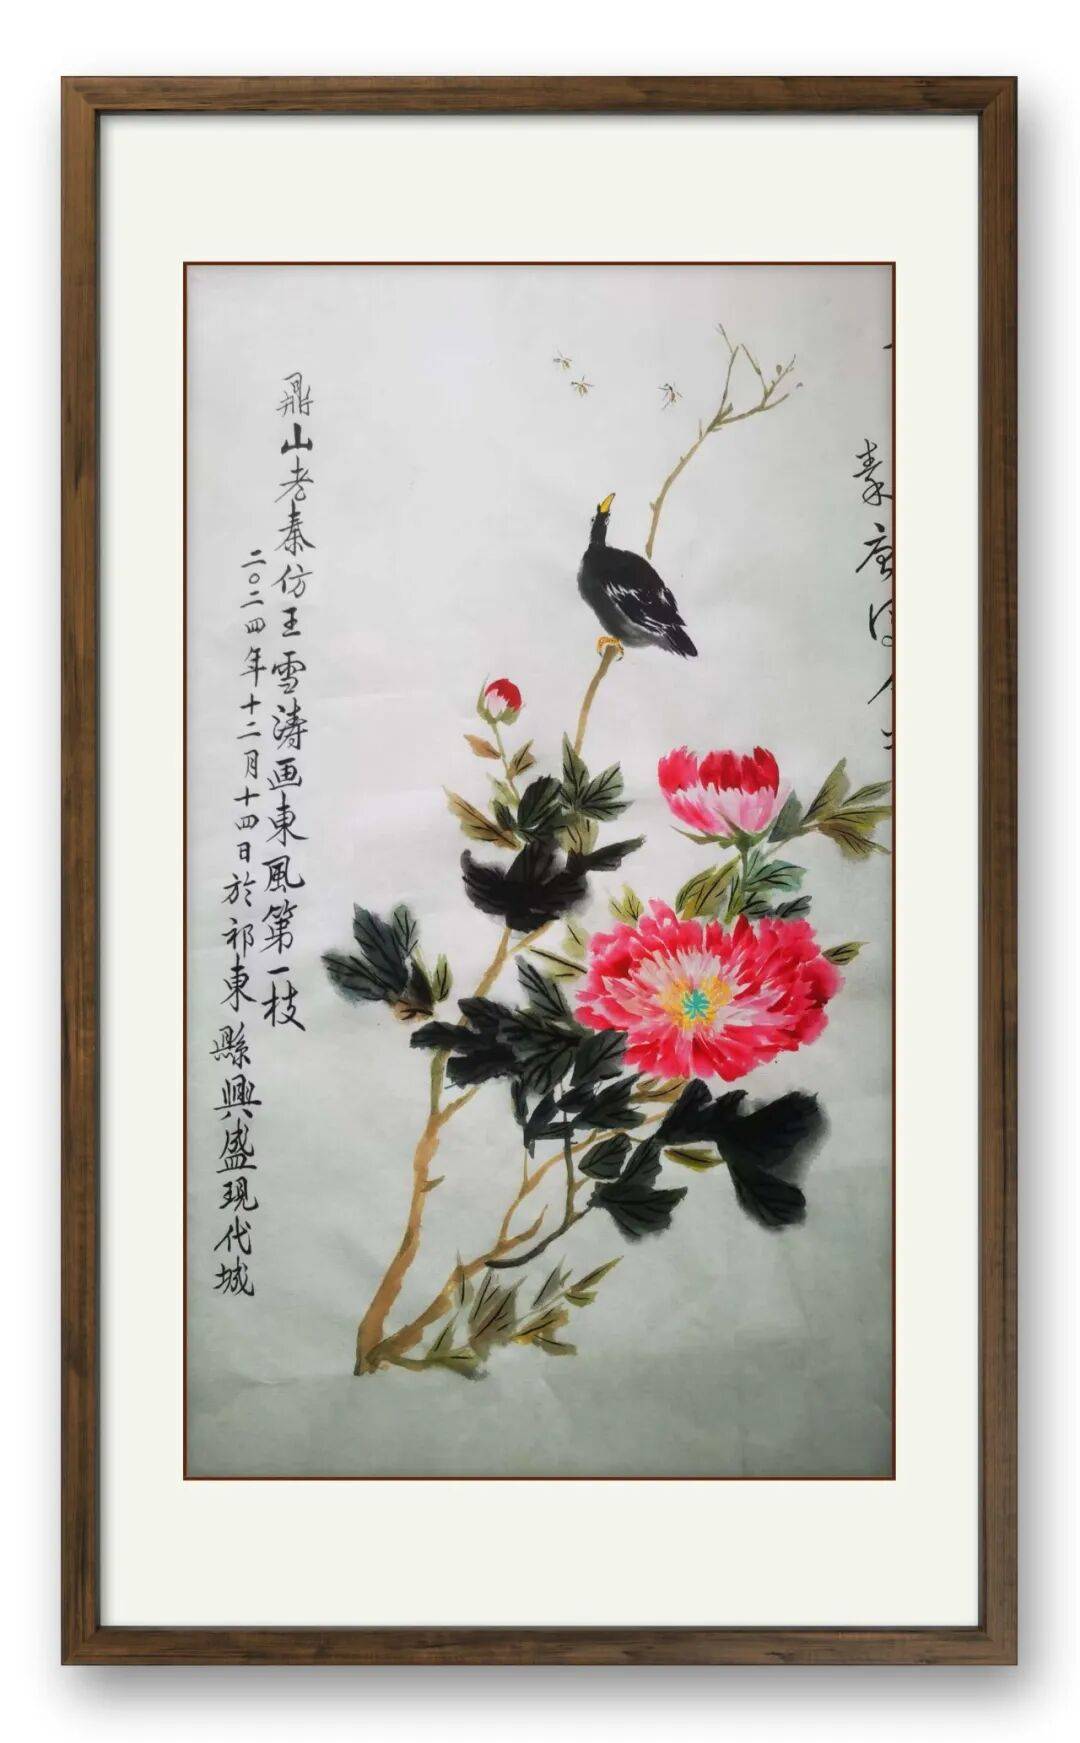 鼎山老秦仿王雪涛画東風第一枝
二〇二四年十二月十四日於祁東縣興盛現代城